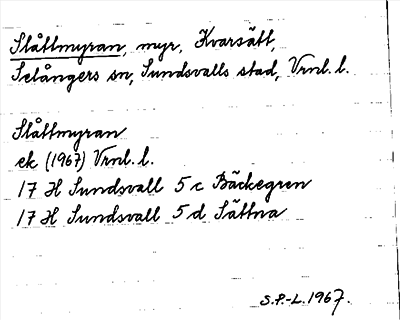 Slåttmyran, myr, Kvarsätt,
Selångers sn, Sundsvalls stad, Vrml. l.
Slåttmyran
ek (1967) Vrnl. l.
17 H Sundsvall 5 c Bäckegren
17 H Sundsvall 5 d Sättna
S.P.-L. 1967.